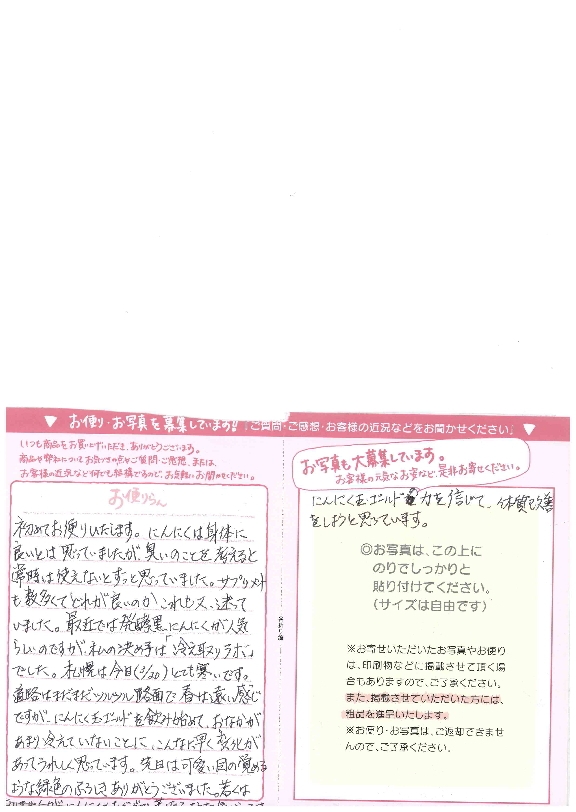 ▼ お便り・お写真を募集しています!!「ご質問・ご感想・お客様の近況などをお聞かせください」▼
いつも商品をお買い上げいただき、ありがとうございます。
商品や弊社についてお気づきの点やご質問・ご感想、または、
お客様の近況など何でも結構ですので、お気軽にお聞かせください。
お便りらん
初めてお便りいたします。にんにくは身体に
良いとは思っていましたが、臭いのことを考えると
常時は使えないとずっと思っていました。サプリメント
も数多くてどれが良いのかこれも又、迷って
いました。最近では発酵黒にんにくが人気
らしいのですが、私の決め手は「冷え取りラボ」
でした。札幌は今日(3/20)とても寒いです。
道路はまだまだツルツル路面で春は遠い感じ
ですが、にんにく玉ゴールドを飲み始めて、おなかが
あまり冷えていないことに、こんなに早く変化が
あってうれしく思っています。先日は可愛い目の覚める
ような緑色のふろしきありがとうございました。若くは
お写真も大募集しています。
お客様の元気なお姿など、是非お寄せください。
にんにく玉ゴールドの力を信じて、体質改善
をしようと思っています。
◎お写真は、この上に
のりでしっかりと
貼り付けてください。
(サイズは自由です)
※お寄せいただいたお写真やお便り
は、印刷物などに掲載させて頂く場
合もありますので、ご了承ください。
また、掲載させていただいた方には、
粗品を進呈いたします。
※お便り・お写真は、ご返却できませ
んので、ご了承ください。